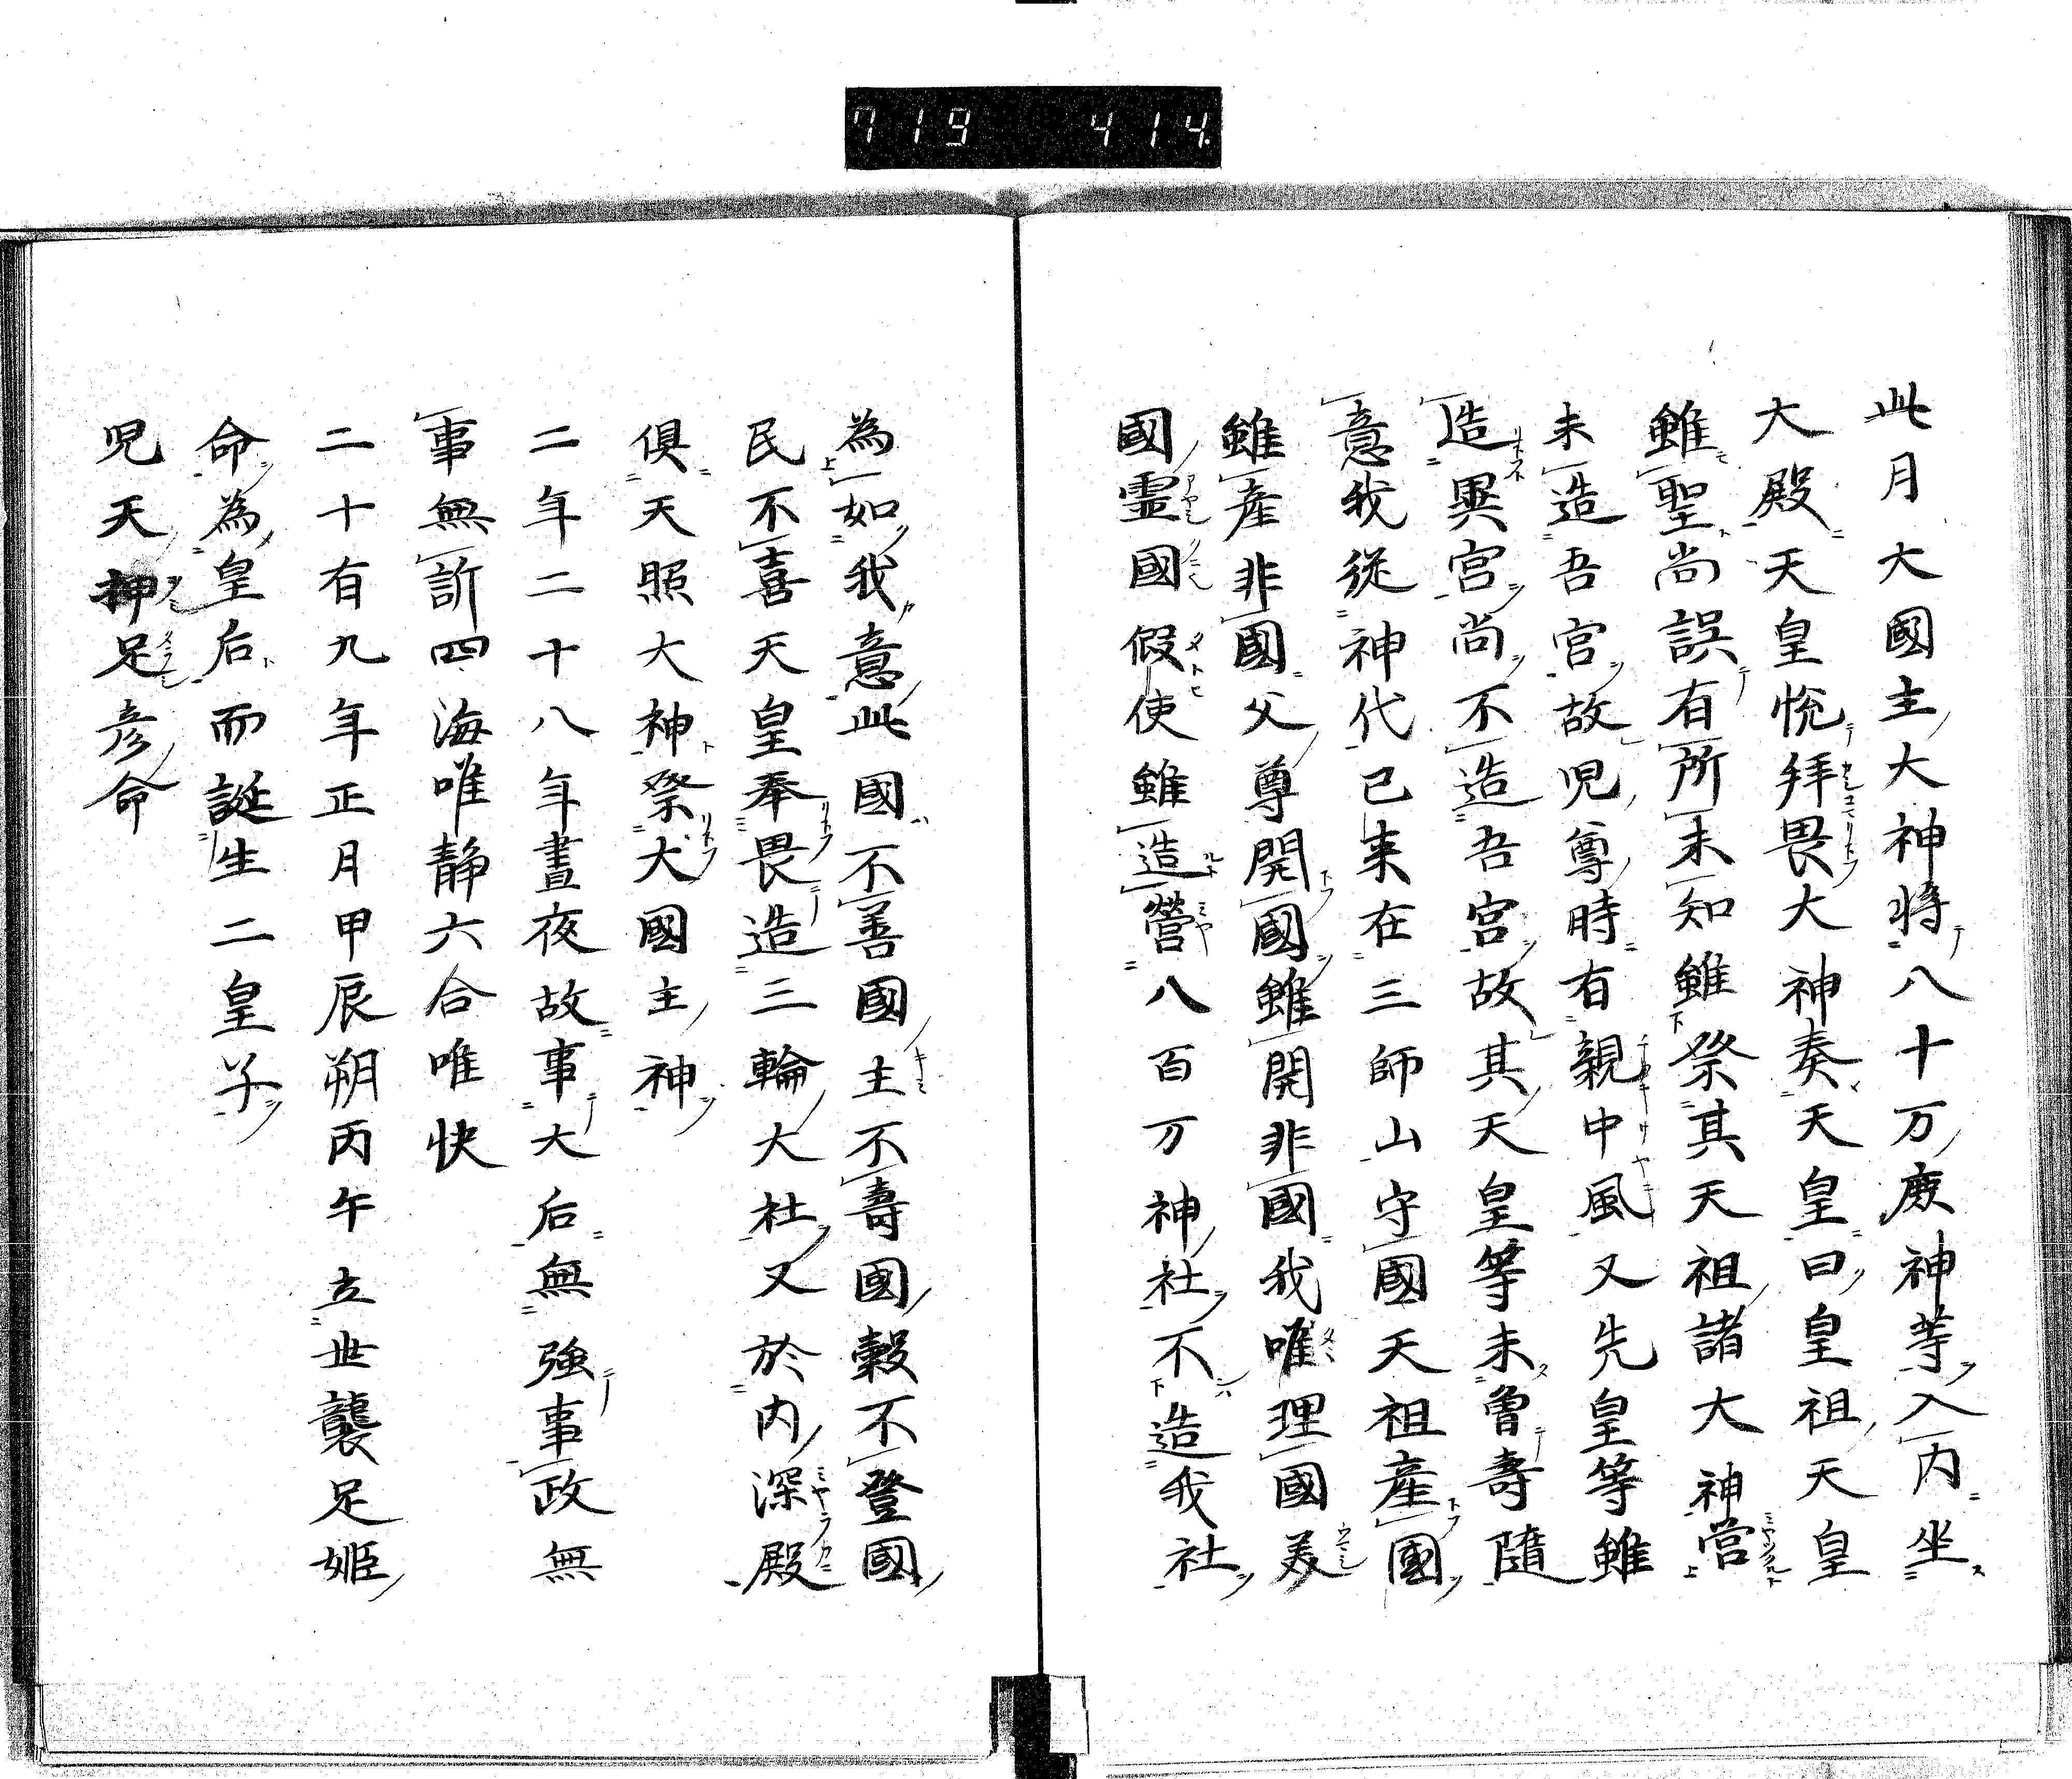 719 414.
此月大國主大神將八十万廄神等入内坐
大殿天皇悅拜畏大神奏天皇曰皇祖天皇
雖聖尚誤有所未知雖祭其天祖諸大神営
未造吾宮故児尊時有親中風又先皇等雖
造異宮尚不造吾宮故其天皇等未曽壽隨
意我從神代已来在三師山守國天祖產國
雖產非國父尊開國雖開非國我唯理國美
國霊國假使雖造營八百万神社不造我社
為如我意此國不善國主不壽國穀不登國
民不喜天皇奉畏造三輪大社又於内深殿
俱天照大神祭大國主神
二年二十八年晝夜故事大后無強事政無
事無訢四海唯静六合唯快
二十有九年正月甲辰朔丙午立世襲足姬
命為皇后而誕生二皇子
児天押足彦命